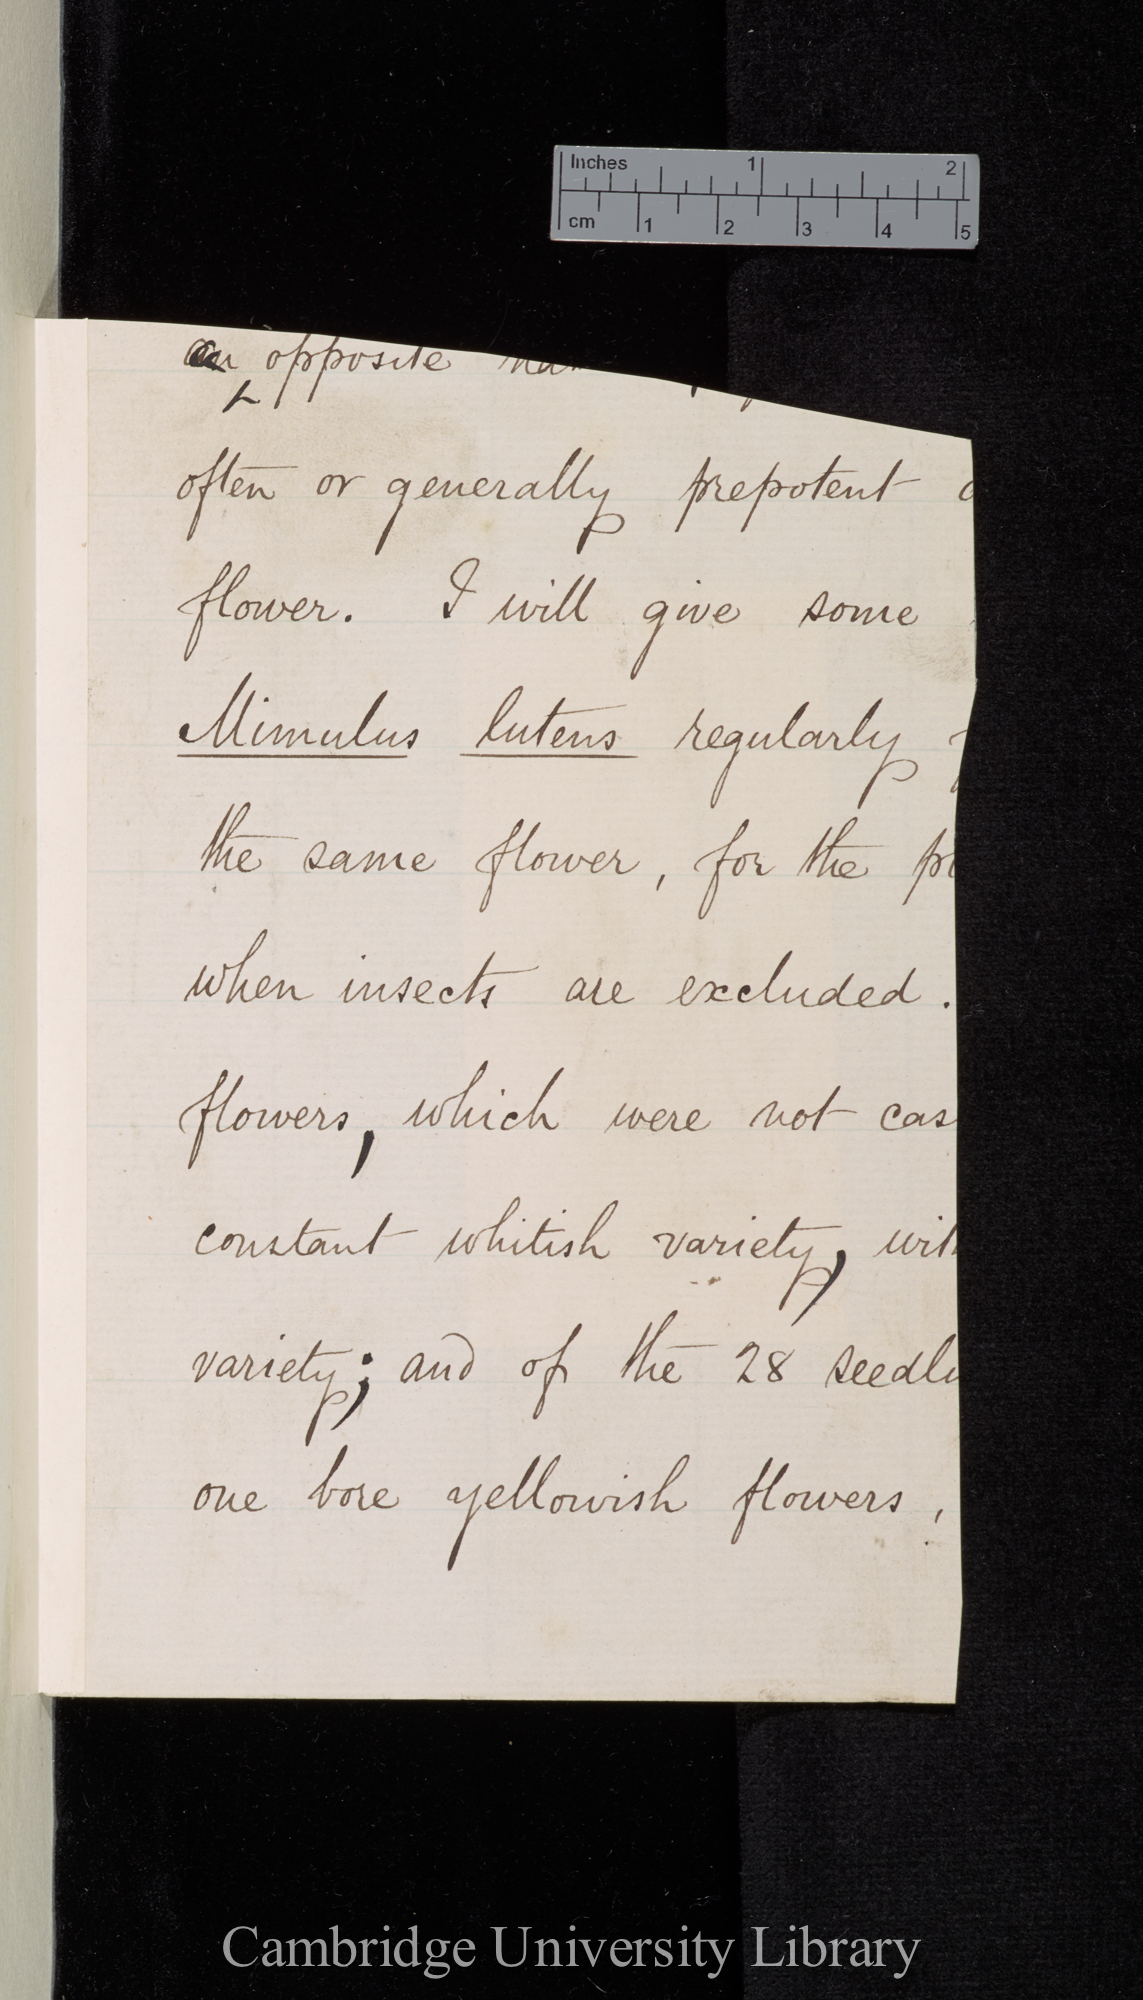 Inches 1 2
cm 1 2 3 4 5
an opposite
often or generally prepotent
flower. I will give some
Mimulus luteus regularly
the same flower, for the pr
when insects are excluded.
flowers, which were not cas
constant whitish variety, wit
variety; and of the 28 seedli
one bore yellowish flowers,
Cambridge University Library